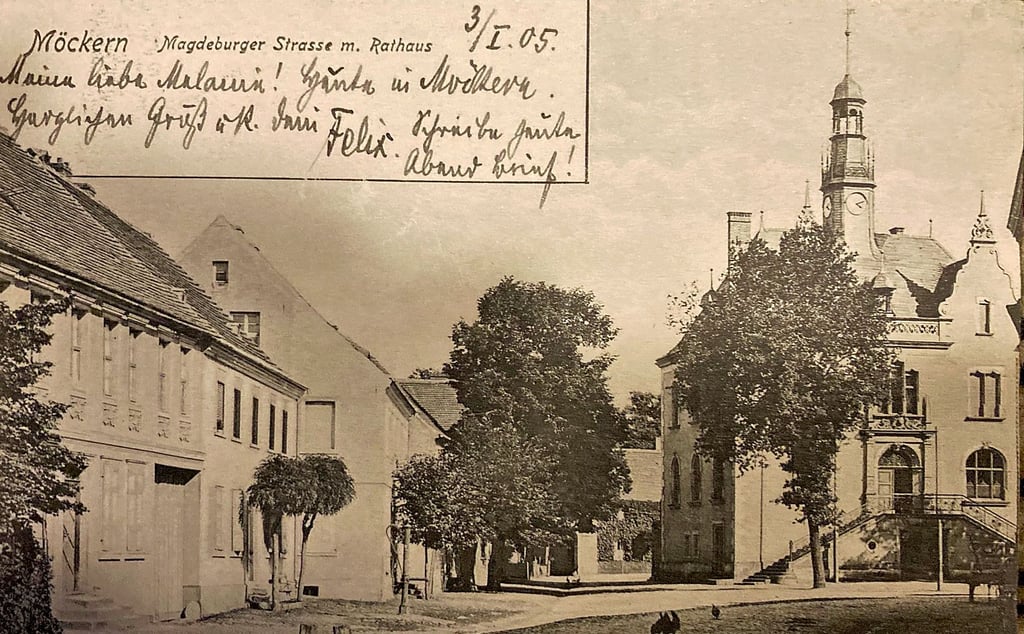 Möckern Magdeburger Strasse m. Rathaus 3/I.05.
Meine liebe Melanie! Heute in Möckern.
Herzlichen Gruß u K. dein Felix. Schreibe heute
Abend Brief!